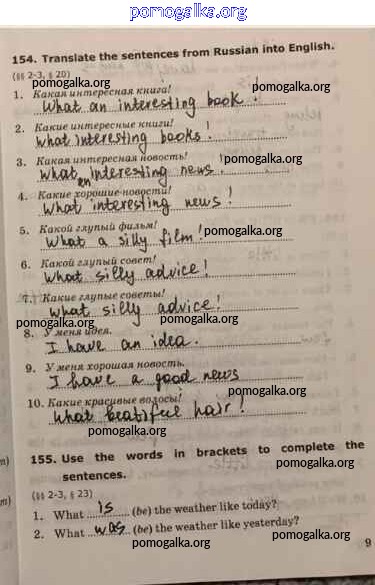 pomogalka.org
154. Translate the sentences from Russian into English.
(§§ 2-3, § 20)
pomogalka.org
1. Какая интересная книга!
What an interesting book!
pomogalka.org
2. Какие интересные книги!
What interesting books!
pomogalka.org
3. Какая интересная новость!
pomogalka.org
What an interesting news.
pomogalka.org
4. Какие хорошие новости!
What interesting news!
5. Какой глупый фильм!
pomogalka.org
What a silly film!
6. Какой глупый совет!
pomogalka.org
What silly advice!
7. Какие глупые советы!
What silly advice!
pomogalka.org pomogalka.org
8. У меня идея.
I have an idea.
9. У меня хорошая новость.
I have a good news
pomogalka.org
10. Какие красивые волосы!
What beatiful hair!
pomogalka.org
155. Use the words in brackets to complete the
sentences.
pomogalka.org
(§§ 2-3, § 23)
1. What is (be) the weather like today?
2. What was (be) the weather like yesterday?
pomogalka.org
9